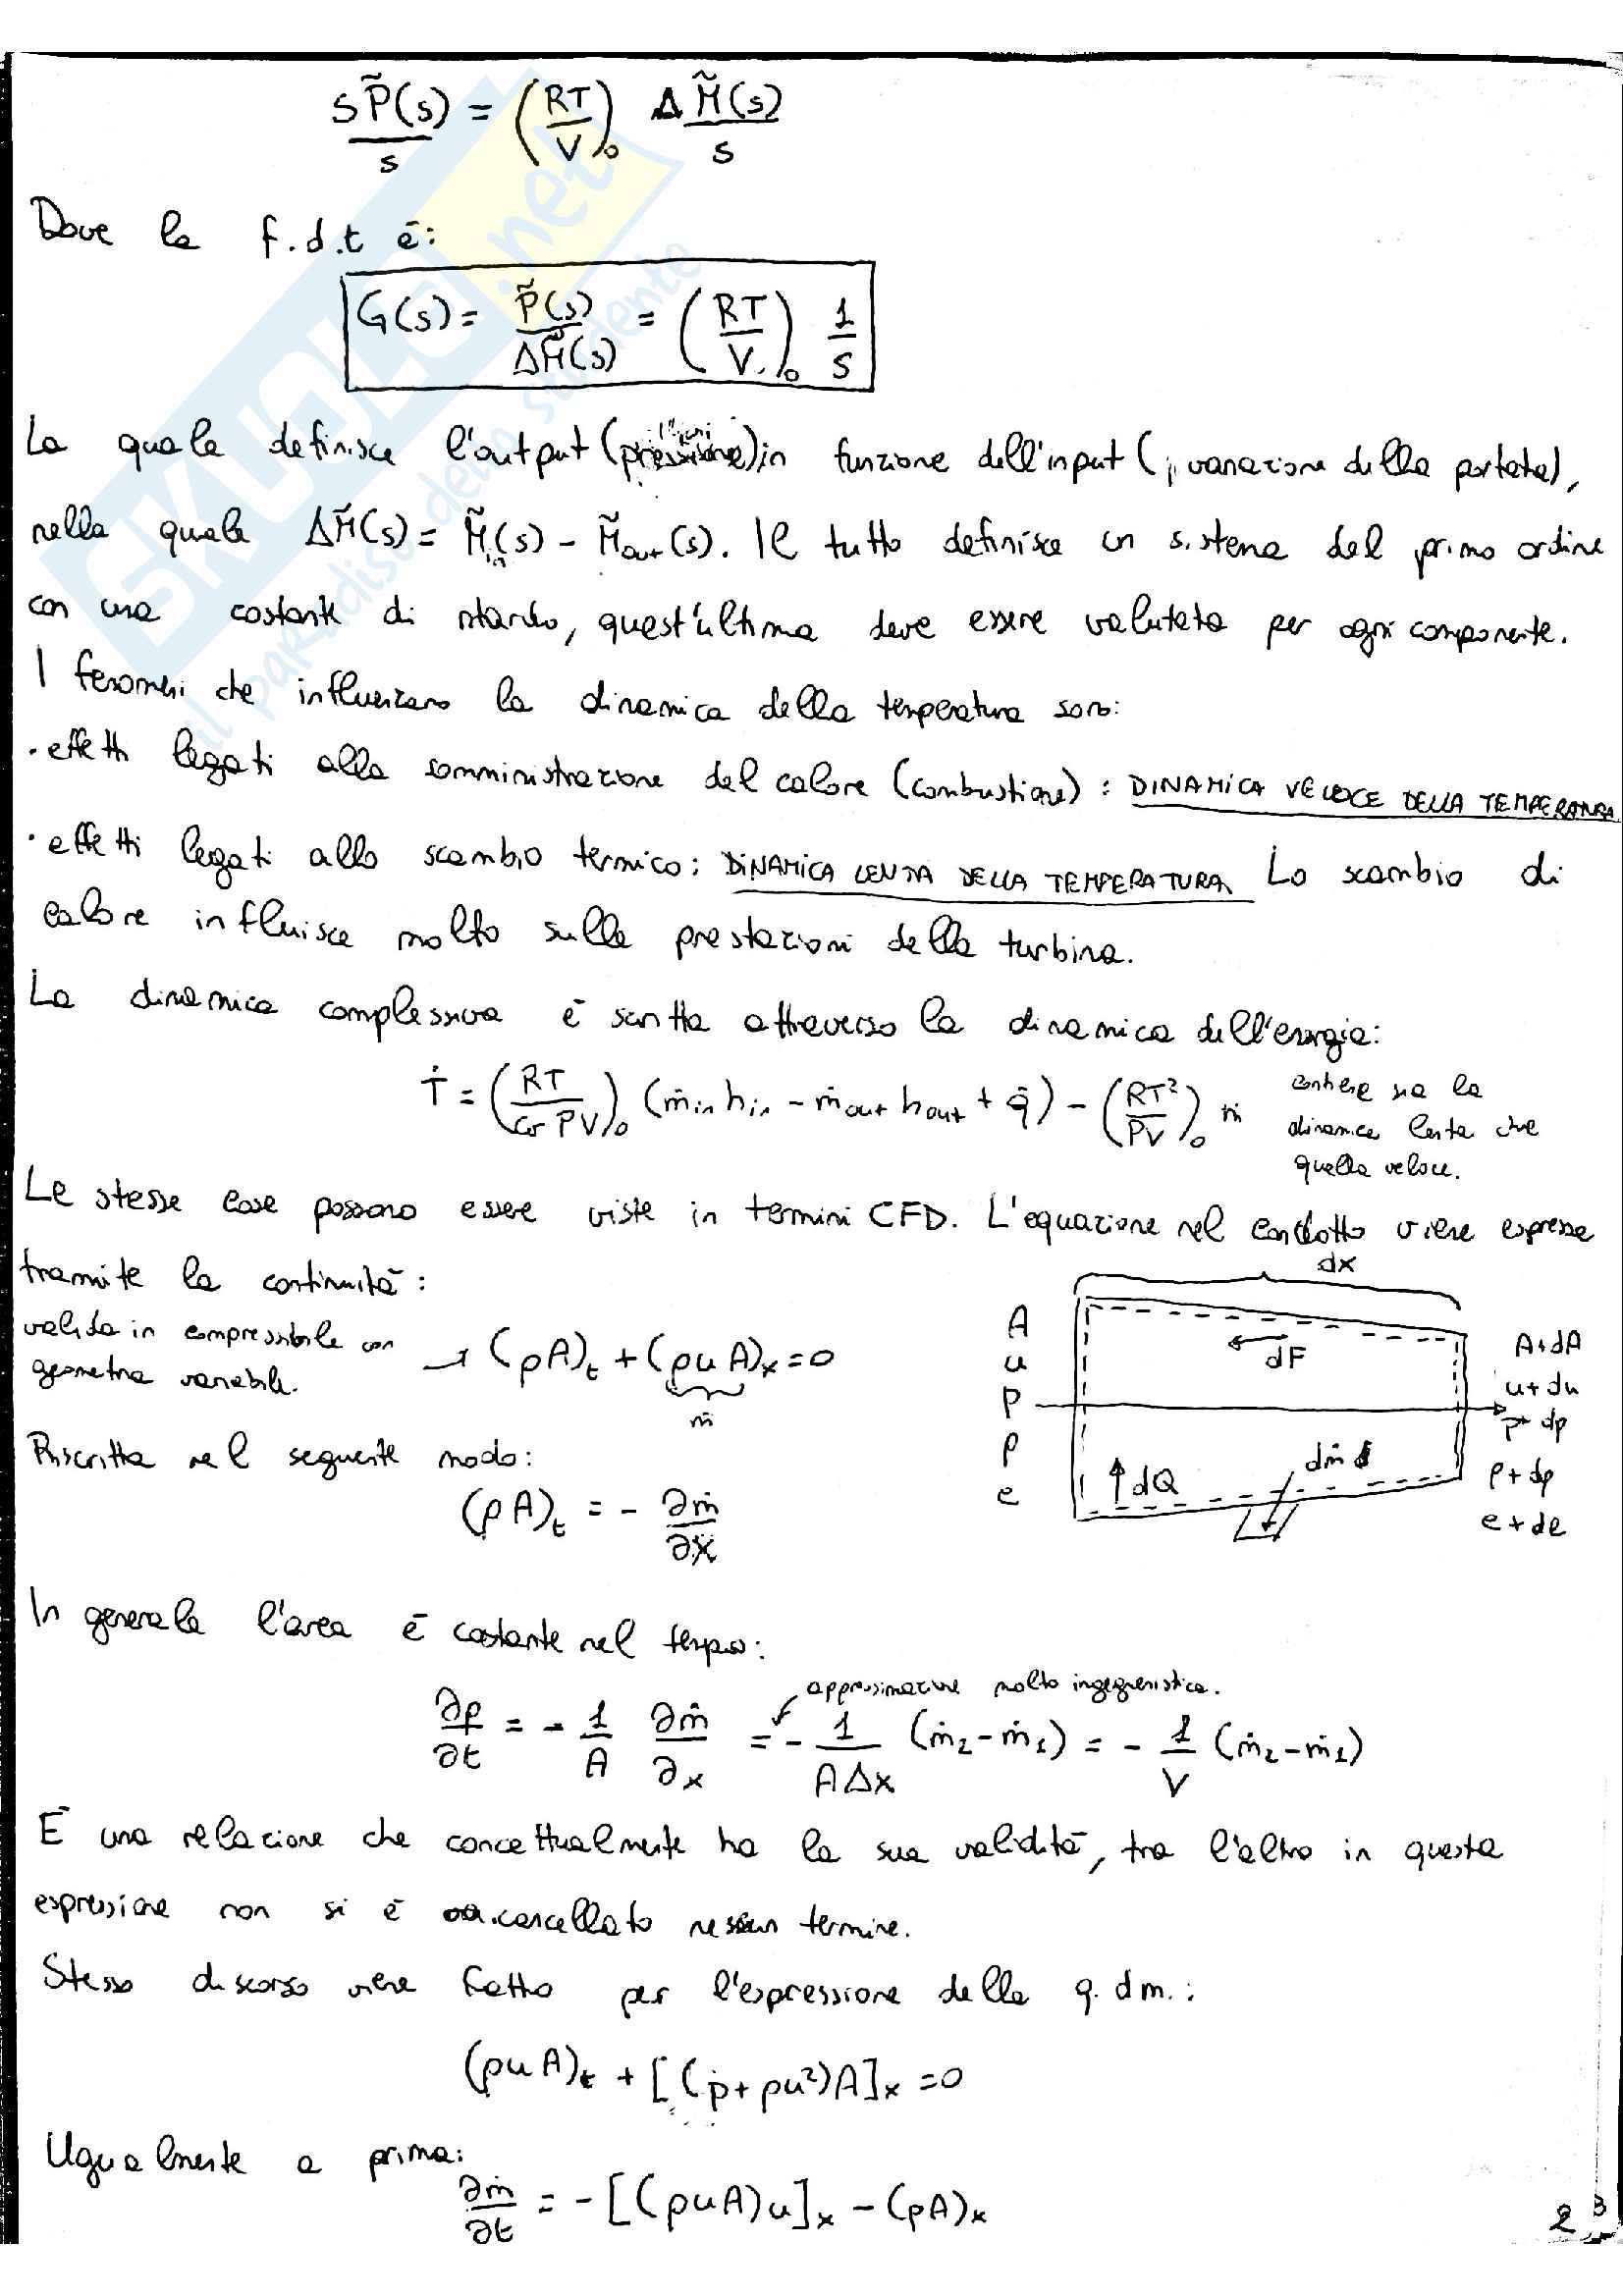 sP̃(s)/s = (RT/V)₀ ΔM̃(s)/s
Dove la f.d.t è:
G(s) = P̃(s)/ΔM̃(s) = (RT/V)₀ 1/s
La quale definisce l'output (pressione) in funzione dell'input (variazione della portata),
nella quale ΔM̃(s) = M̃in(s) - M̃out(s). Il tutto definisce un sistema del primo ordine
con una costante di ritardo, quest'ultima deve essere valutata per ogni componente.
I fenomeni che influenzano la dinamica della temperatura sono:
· effetti legati alla somministrazione del calore (combustione): DINAMICA VELOCE DELLA TEMPERATURA
· effetti legati allo scambio termico: DINAMICA LENTA DELLA TEMPERATURA Lo scambio di
calore influisce molto sulle prestazioni della turbina.
La dinamica complessiva è scritta attraverso la dinamica dell'energia:
Ṫ = (RT/cv PV)₀ (ṁin hin - ṁout hout + q̇) - (RT²/PV)₀ ṁ
contiene sia la
dinamica lenta che
quella veloce.
Le stesse cose possono essere viste in termini CFD. L'equazione nel condotto viene espressa
tramite la continuità:
valida in compressibile con
geometria variabile.
→ (ρA)t + (ρuA)x = 0
ṁ
dx
A
u
p
ρ
e
dF
dQ
dṁ
A+dA
u+du
p+dp
ρ+dρ
e+de
Riscritta nel seguente modo:
(ρA)t = - ∂ṁ/∂x
In generale l'area è costante nel tempo:
approssimazione molto ingegneristica.
∂ρ/∂t = - 1/A ∂ṁ/∂x = - 1/AΔx (ṁ2 - ṁ1) = - 1/V (ṁ2 - ṁ1)
È una relazione che concettualmente ha la sua validità, tra l'altro in questa
espressione non si è cancellato nessun termine.
Stesso discorso viene fatto per l'espressione della q.dm.:
(ρuA)t + [(p+ρu²)A]x = 0
Ugualmente a prima:
∂ṁ/∂t = - [(ρuA)u]x - (pA)x
SKUOLA.net
il paradiso dello studente